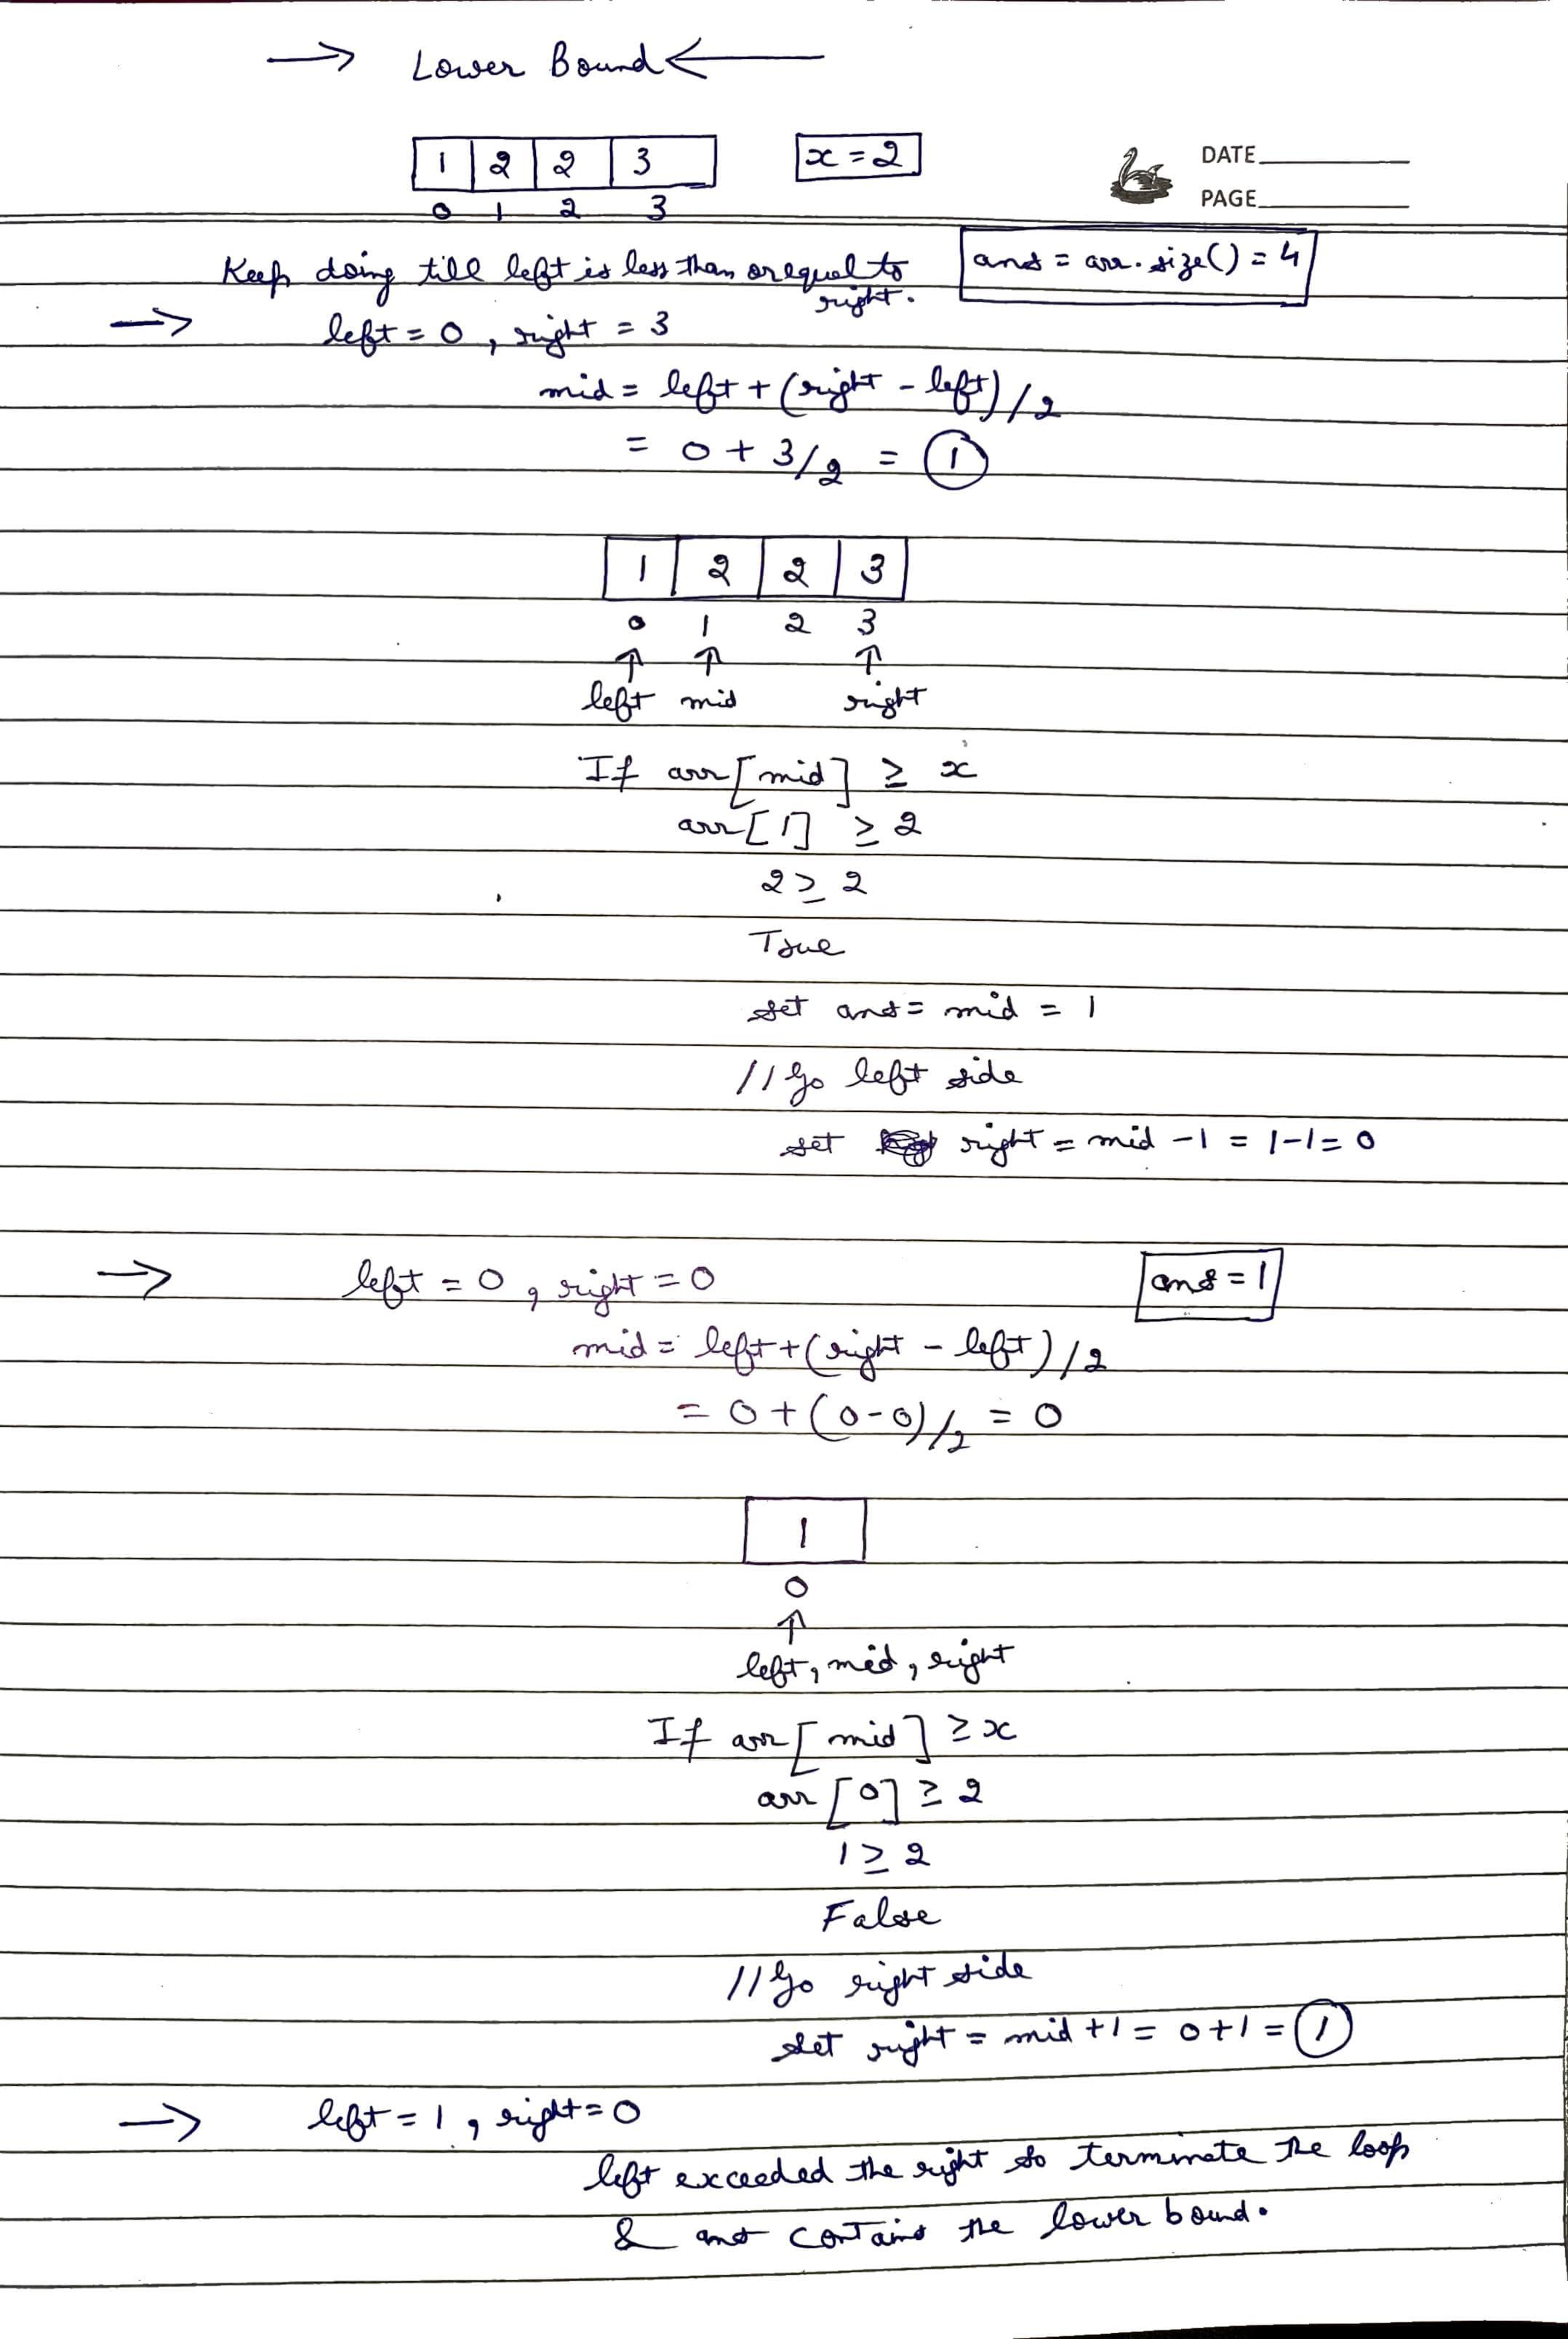 → Lower Bound ←
1 2 2 3 x = 2
0 1 2 3
DATE
PAGE
Keep doing till left is less than or equal to right.
ans = arr.size() = 4
→ left = 0, right = 3
mid = left + (right - left)/2
= 0 + 3/2 = 1
1 2 2 3
0 1 2 3
↑ ↑ ↑
left mid right
If arr[mid] ≥ x
arr[1] ≥ 2
2 ≥ 2
True
set ans = mid = 1
//Go left side
set right = mid - 1 = 1-1 = 0
→ left = 0, right = 0
ans = 1
mid = left + (right - left)/2
= 0 + (0-0)/2 = 0
1
0
↑
left, mid, right
If arr[mid] ≥ x
arr[0] ≥ 2
1 ≥ 2
False
//Go right side
set right = mid + 1 = 0+1 = 1
→ left = 1, right = 0
left exceeded the right so terminate the loop
& ans contains the lower bound.